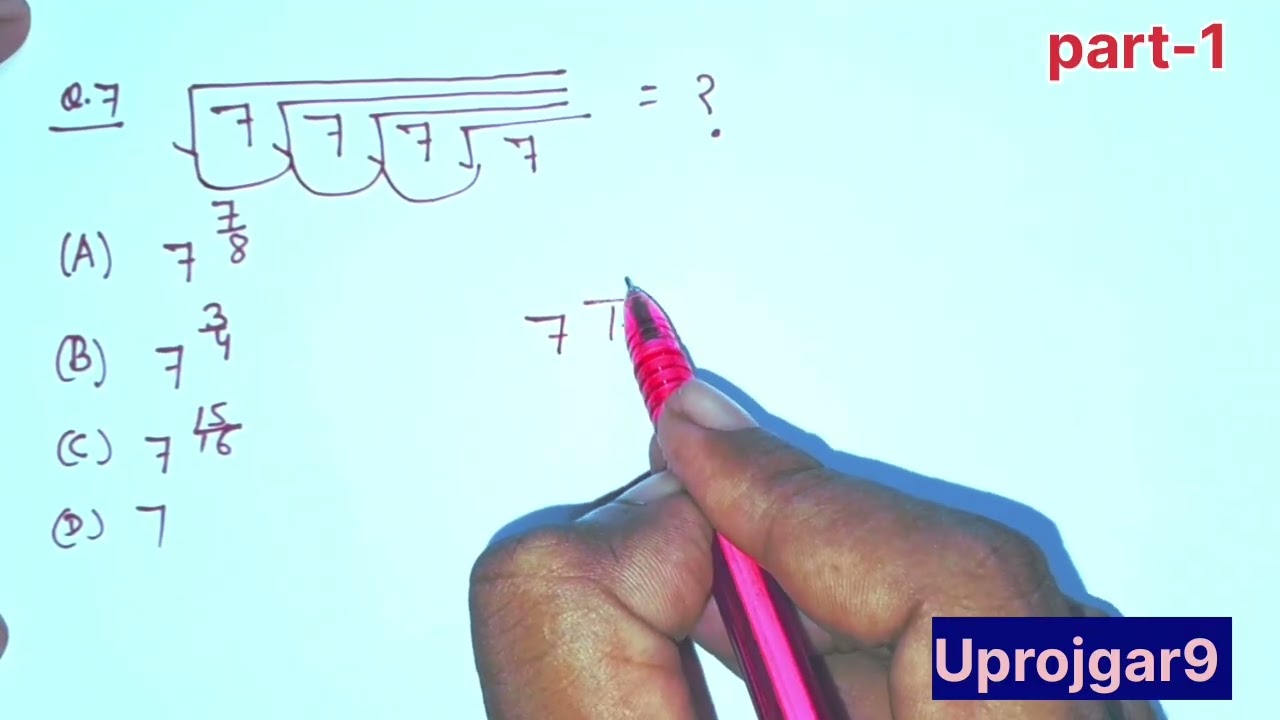 part-1
Q.7 √7√7√7√7 = ?
(A) 7^7/8
(B) 7^3/4
(C) 7^15/16
(D) 7
7
Uprojgar9